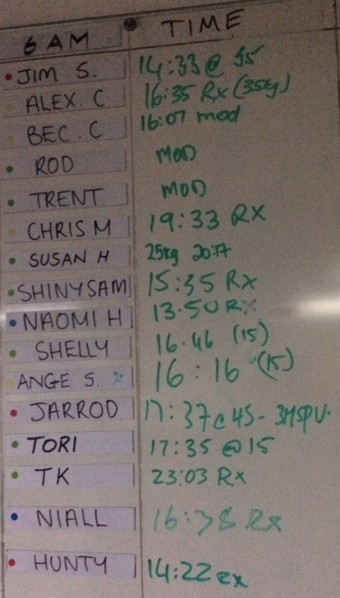 6 AM TIME
JIM S. 14:33 @ 35
ALEX. C 16:35 Rx (35kg)
BEC. C 16:07 mod
ROD MOD
TRENT MOD
CHRIS M 19:33 RX
SUSAN H 25kg 20:17
SHINY SAM 15:35 Rx
NAOMI H 13.50 RX
SHELLY 16.46 (15)
ANGE S. 16:16 (15)
JARROD 17:37 @ 45 - 3HSPU.
TORI 17:35 @ 15
TK 23:03 Rx
NIALL 16:38 Rx
HUNTY 14:22 RX